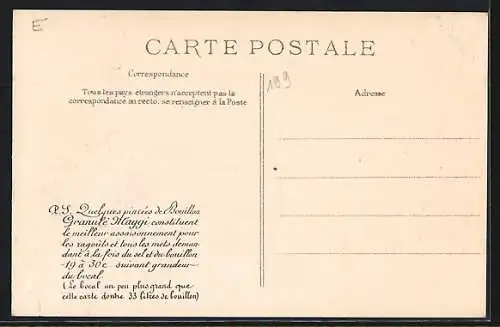 E
CARTE POSTALE
Correspondance
Tous les pays étrangers n'acceptent pas la
correspondance au recto. se renseigner à la Poste
189
Adresse
P.S. Quelques pincées de Bouillon
Granulé Maggi constituent
le meilleur assaisonnement pour
les ragoûts et tous les mets deman
dant à la fois du sel et du bouillon
19 à 30c suivant grandeur
du bocal.
(Le bocal un peu plus grand que
cette carte donne 33 litres de bouillon)